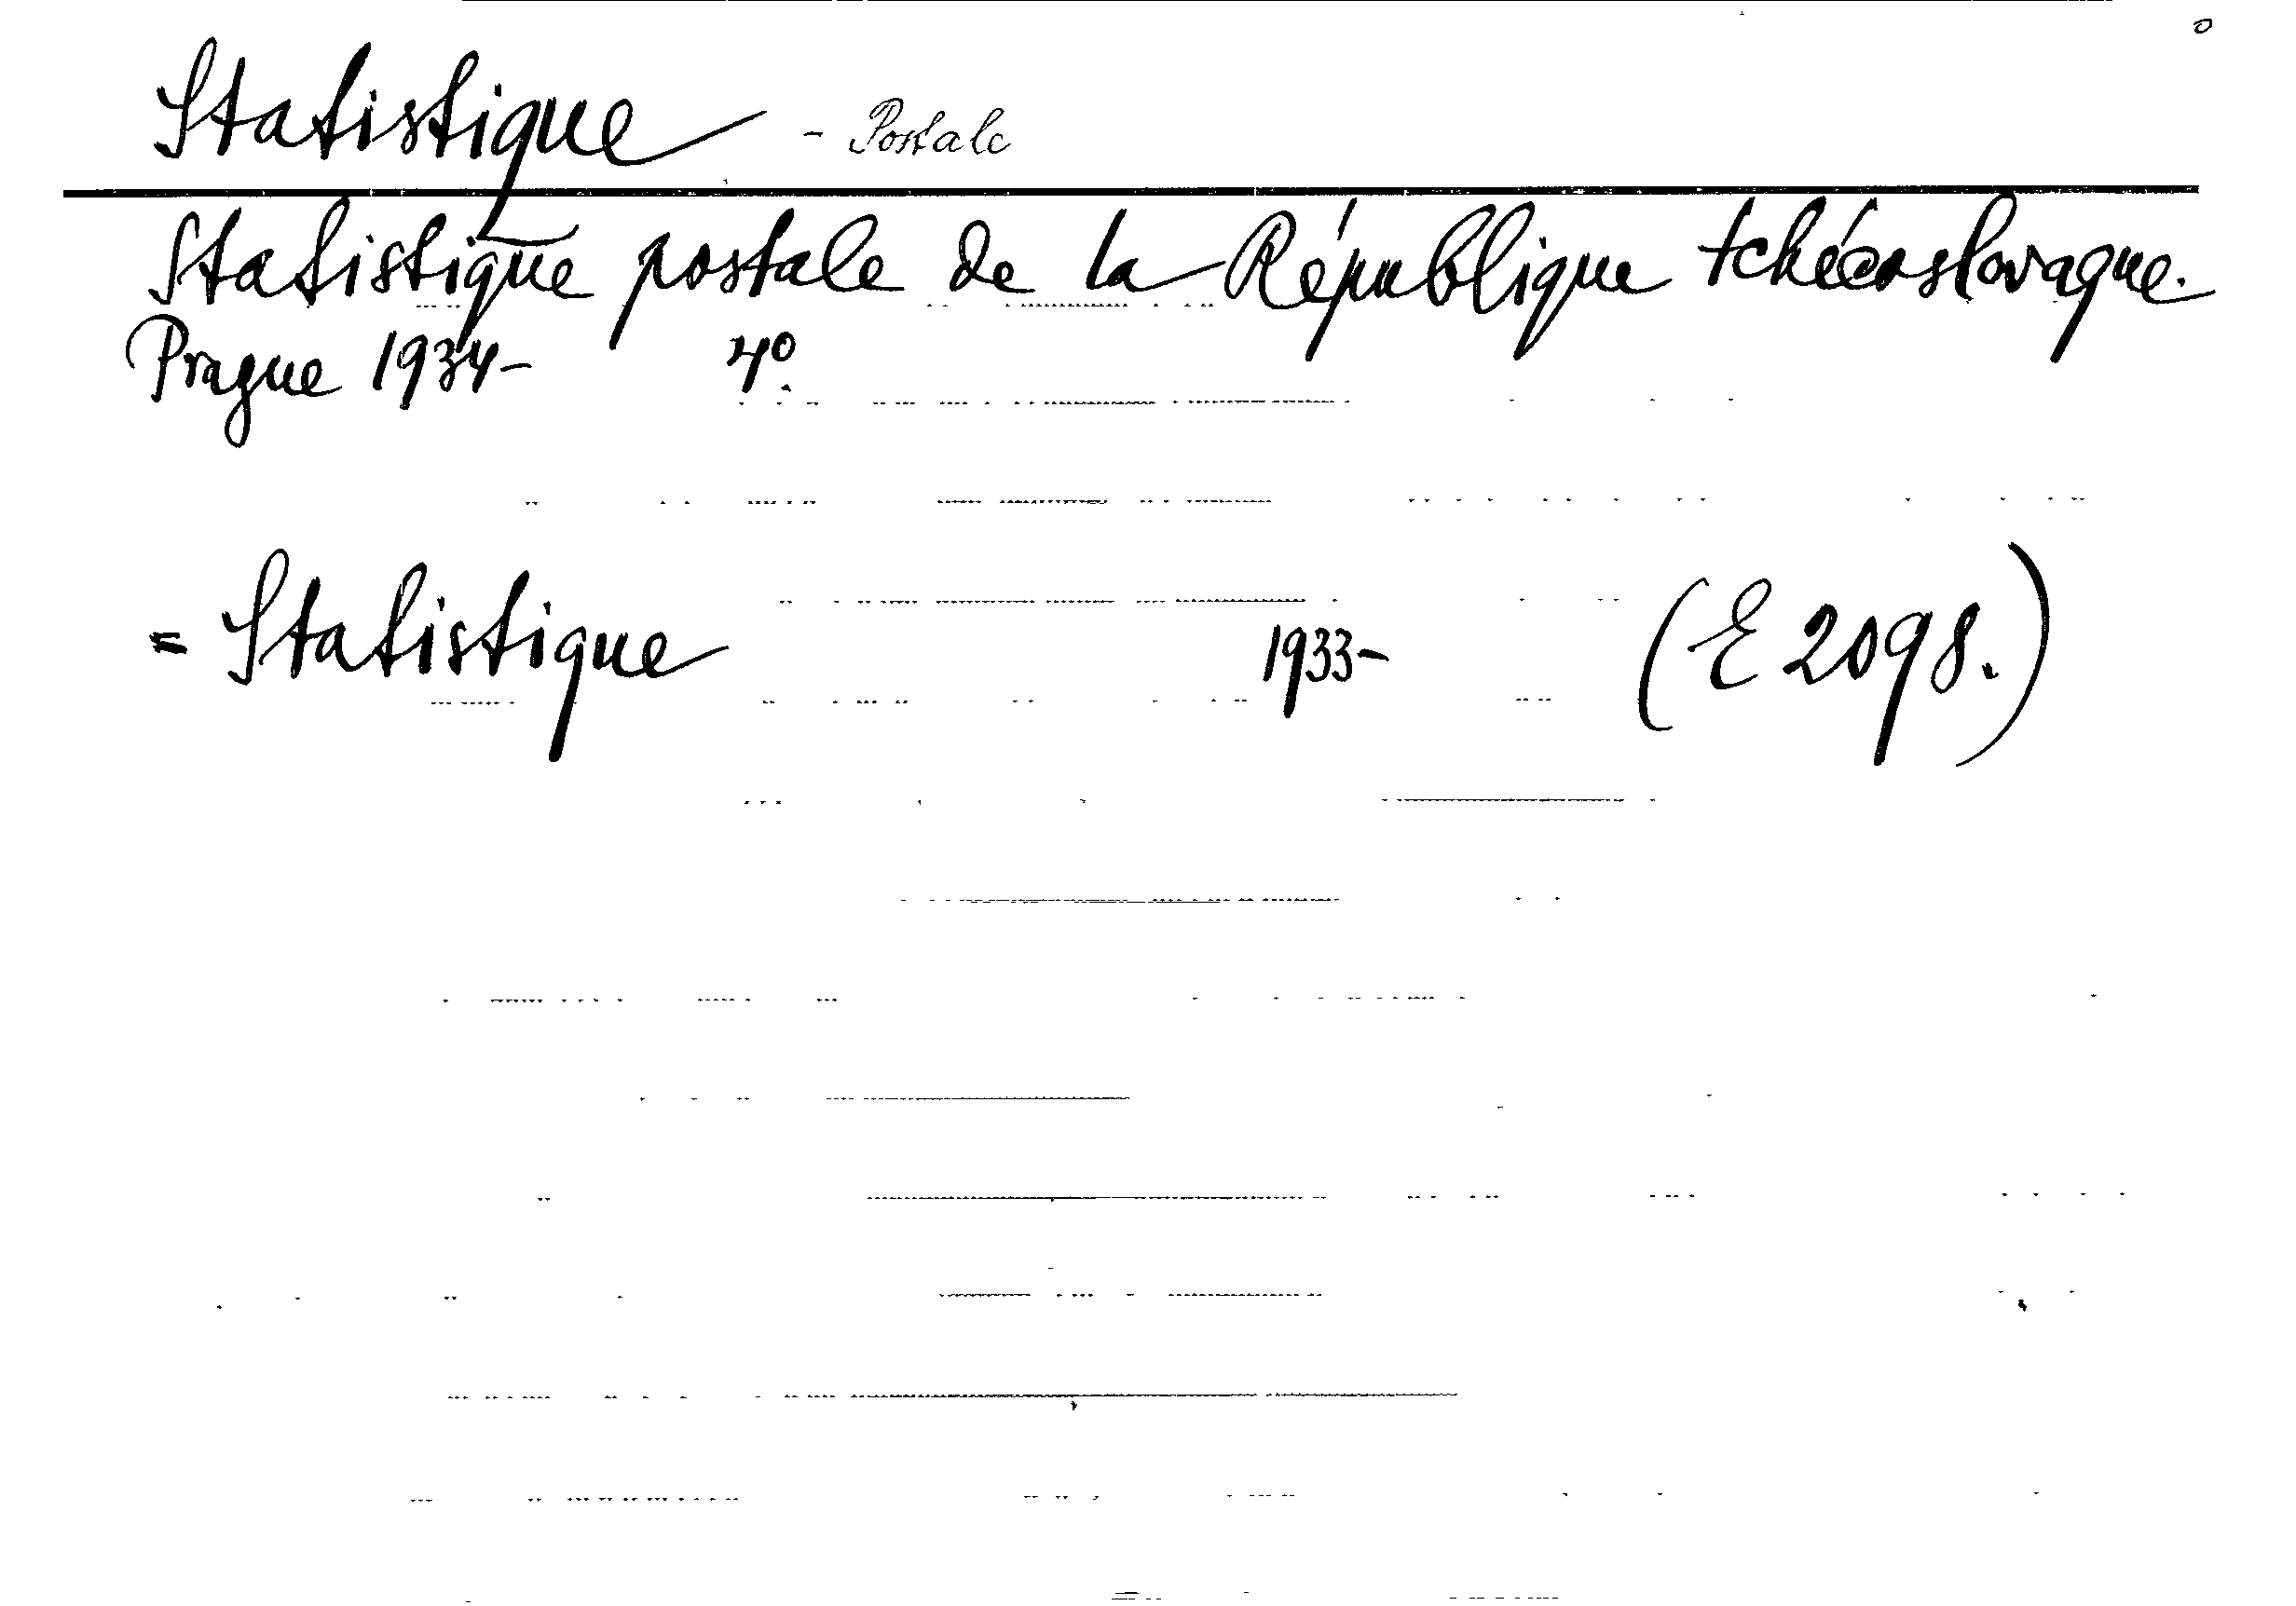 Statistique - Postale
Statistique postale de la République tchécoslovaque.
Prague 1934- 4°.
= Statistique 1933- (E 2098.)